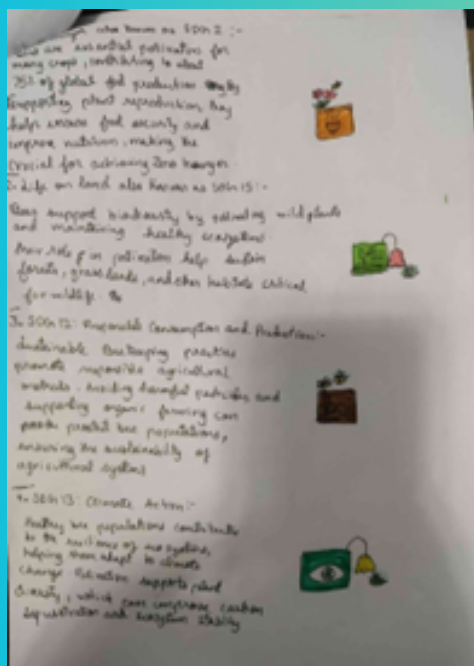 also known as SDG 2 :-
are essential pollinators for
many crops, contributing to about
75% of global food production By
supporting plant reproduction, they
help ensure food security and
improve nutrition, making the
crucial for achieving zero hunger.
2. Life on land also known as SDG 15:-
Bees support biodiversity by wild plants
and maintaining healthy ecosystems.
their role in pollination help sustain
forests, grasslands, and other habitats critical
for wildlife.
3. SDG 12: Responsible Consumption and Production:-
Sustainable Beekeeping practices
promote responsible agricultural
methods. Avoiding harmful pesticides and
supporting organic farming can
protect bee populations,
ensuring the sustainability of
agricultural systems
4. SDG 13: Climate Action:-
Healthy bee populations contribute
to the resilience of ecosystems,
helping them adapt to climate
change Pollination supports plant
diversity, which can carbon
sequestration and ecosystem stability